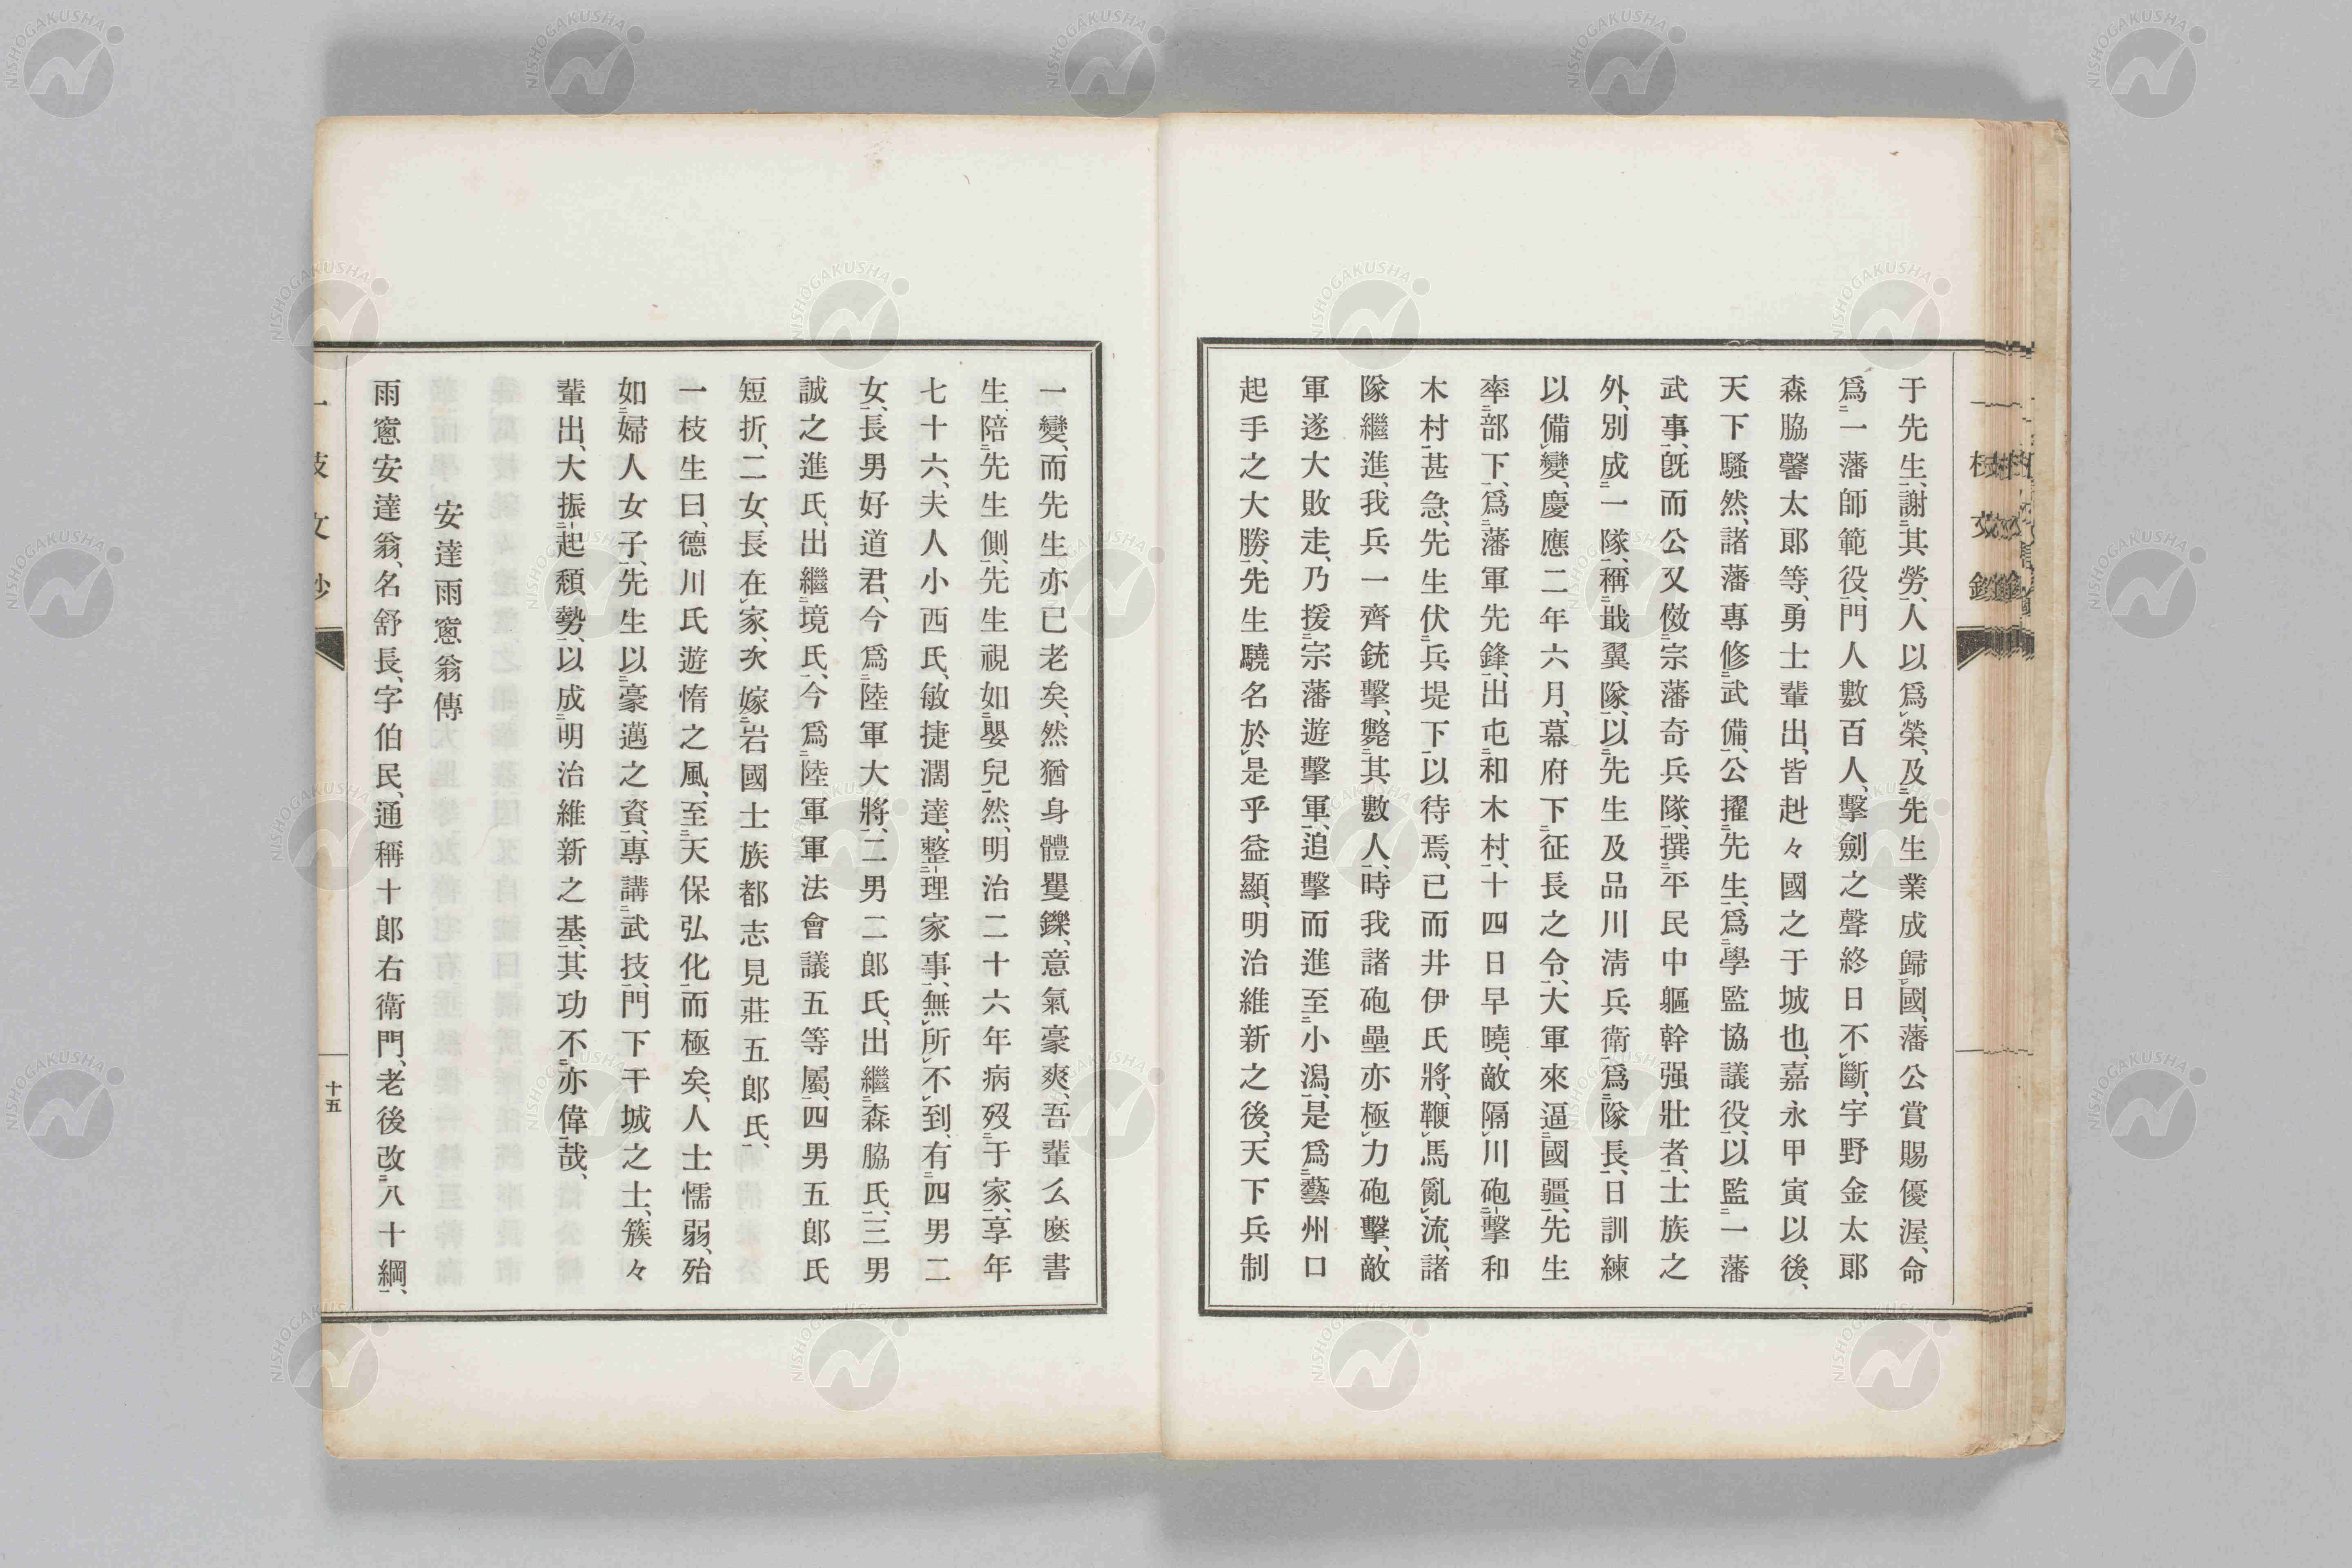 于先生、謝其勞、人以爲榮、及先生業成歸國、藩公賞賜優渥、命
爲一藩師範役、門人數百人、擊劍之聲終日不斷、宇野金太郞
森脇馨太郞等、勇士輩出、皆赳々國之于城也、嘉永甲寅以後、
天下騷然、諸藩專修武備、公擢先生、爲學監協議役、以監一藩
武事、旣而公又傚宗藩奇兵隊、撰平民中軀幹强壯者、士族之
外、別成一隊、稱戢翼隊、以先生及品川淸兵衛、爲隊長、日訓練
以備變、慶應二年六月、幕府下征長之令、大軍來逼國疆、先生
率部下、爲藩軍先鋒、出屯和木村、十四日早曉、敵隔川砲擊和
木村、甚急、先生伏兵堤下、以待焉、已而井伊氏將、鞭馬亂流、諸
隊繼進、我兵一齊銃擊、斃其數人、時我諸砲壘亦極力砲擊、敵
軍遂大敗走、乃援宗藩遊擊軍、追擊而進至小潟、是爲藝州口
起手之大勝、先生驍名於是乎益顯、明治維新之後、天下兵制
一變、而先生亦已老矣、然猶身體矍鑠、意氣豪爽、吾輩么麽書
生、陪先生側、先生視如嬰兒然、明治二十六年病歿于家、享年
七十六、夫人小西氏、敏捷濶達、整理家事、無所不到、有四男二
女、長男好道君、今爲陸軍大將、二男二郞氏、出繼森脇氏、三男
誠之進氏、出繼境氏、今爲陸軍軍法會議五等屬、四男五郞氏
短折、二女、長在家、次嫁岩國士族都志見莊五郞氏、
一枝生曰、德川氏遊惰之風、至天保弘化而極矣、人士懦弱、殆
如婦人女子、先生以豪邁之資、專講武技、門下干城之士、簇々
輩出、大振起頹勢、以成明治維新之基、其功不亦偉哉、
安達雨窻翁傳
雨窻安達翁、名舒長、字伯民、通稱十郞右衛門、老後改八十綱、
十五